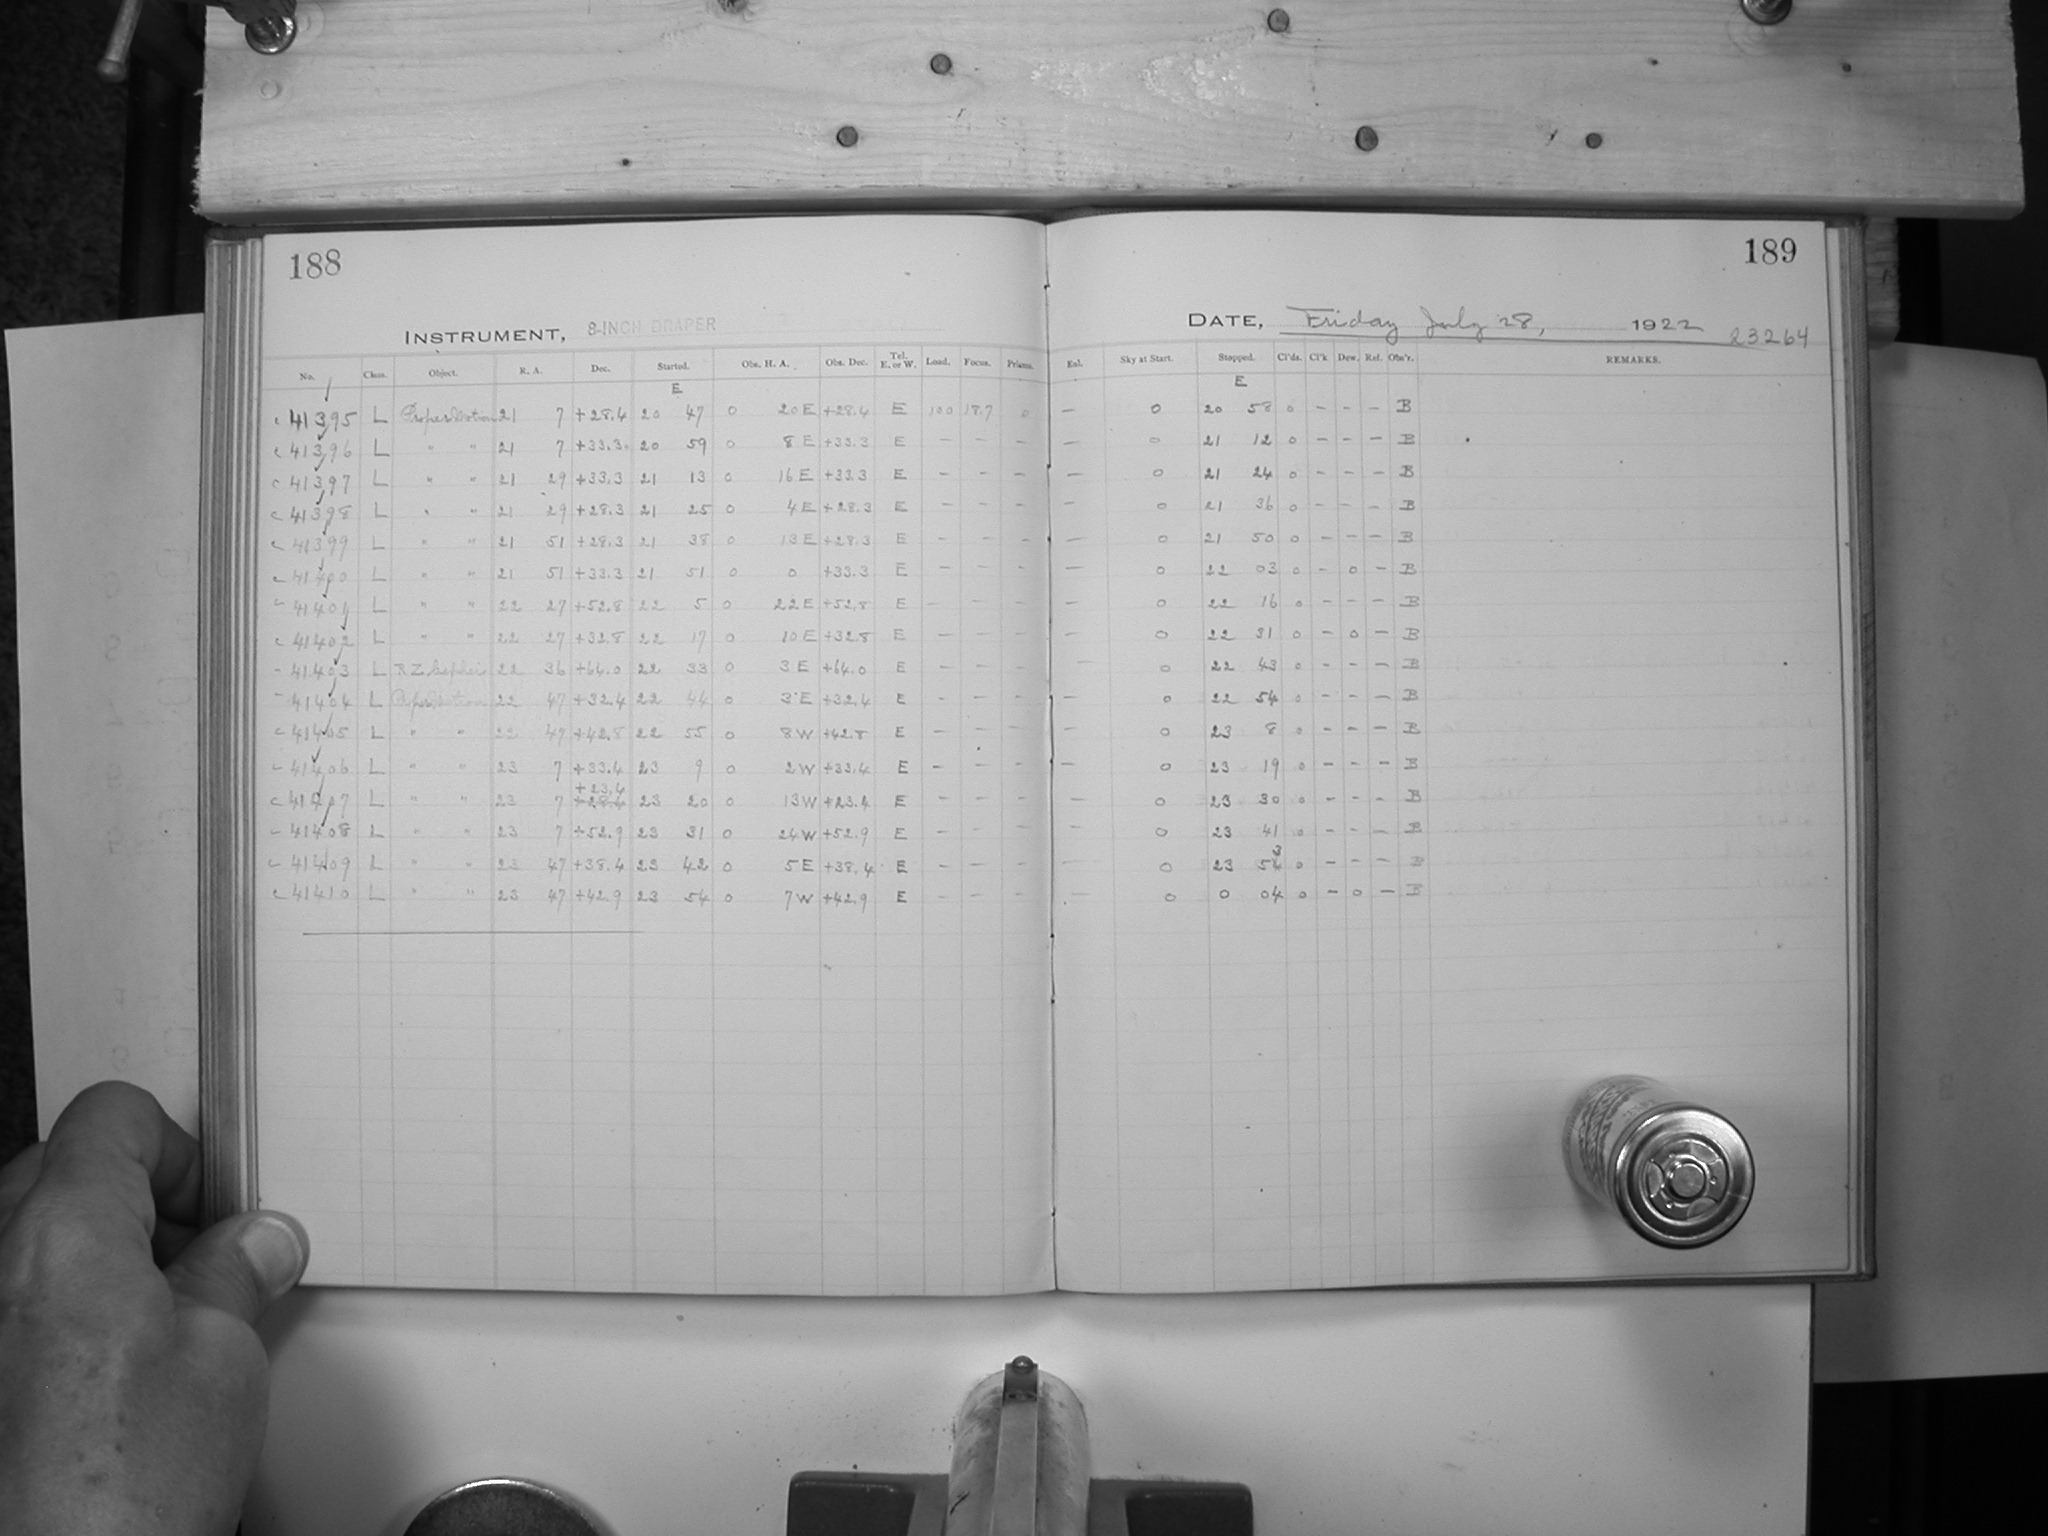 188
189
INSTRUMENT, 8-INCH DRAPER
DATE, Friday July 28, 1922 23264
No. Class. Object. R. A. Dec. Started. Obs. H. A. Obs. Dec. Tel. E. or W. Load. Focus. Prisms. Exl. Sky at Start. Stopped. Cl'ds. Cl'k Dew. Ref. Obs'r. REMARKS.
E E
c 41395 L Proper Motion 21 7 +28.4 20 47 0 20 E +28.4 E 100 18.7 0 — 0 20 58 0 - - - B
c 41396 L " " 21 7 +33.3 20 59 0 8 E +33.3 E - - - — 0 21 12 0 - - - B
c 41397 L " " 21 29 +33.3 21 13 0 16 E +33.3 E - - - — 0 21 24 0 - - - B
c 41398 L " " 21 29 +28.3 21 25 0 4 E +28.3 E - - - — 0 21 36 0 - - - B
c 41399 L " " 21 51 +28.3 21 38 0 13 E +28.3 E - - - — 0 21 50 0 - - - B
c 41400 L " " 21 51 +33.3 21 51 0 0 +33.3 E - - - — 0 22 03 0 - 0 - B
c 41401 L " " 22 27 +52.8 22 5 0 22 E +52.8 E - - - — 0 22 16 0 - - - B
c 41402 L " " 22 27 +32.8 22 17 0 10 E +32.8 E - - - — 0 22 31 0 - 0 - B
- 41403 L RZ Cephei 22 36 +64.0 22 33 0 3 E +64.0 E - - - — 0 22 43 0 - - - B
- 41404 L Proper Motion 22 47 +32.4 22 44 0 3 E +32.4 E - - - — 0 22 54 0 - - - B
c 41405 L " " 22 47 +42.8 22 55 0 8 W +42.8 E - - - — 0 23 8 0 - - - B
c 41406 L " " 23 7 +33.4 23 9 0 2 W +33.4 E - - - — 0 23 19 0 - - - B
+23.4
c 41407 L " " 23 7 +28.4 23 20 0 13 W +23.4 E - - - — 0 23 30 0 - - - B
c 41408 L " " 23 7 +52.9 23 31 0 24 W +52.9 E - - - — 0 23 41 0 - - - B
c 41409 L " " 23 47 +38.4 23 42 0 5 E +38.4 E - - - 0 23 53 0 - - - B
c 41410 L " " 23 47 +42.9 23 54 0 7 W +42.9 E - - - — 0 0 04 0 - 0 - B